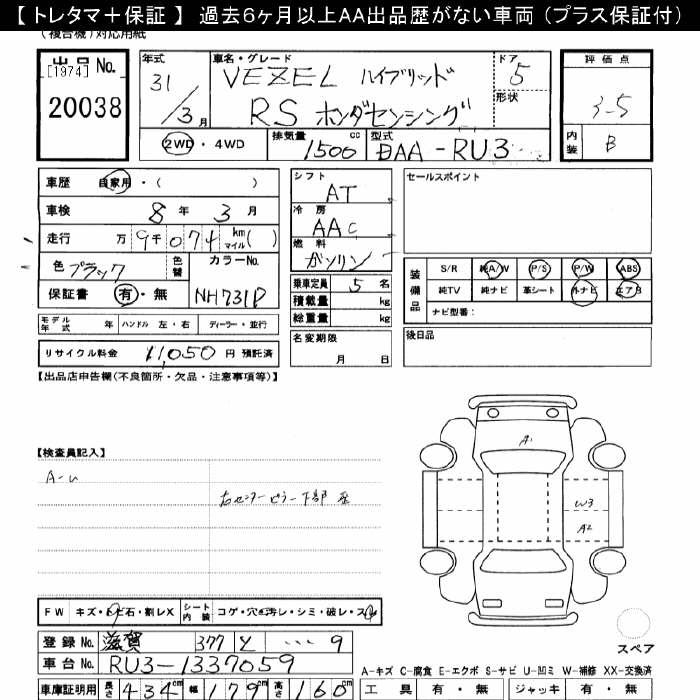 【 トレタマ＋保証 】 過去６ヶ月以上ＡＡ出品歴がない車両（プラス保証付）
(複合機)対応用紙
出品 No.
[1974]
20038
年式
31
3月
車名・グレード
VEZEL ハイブリッド
RS ホンダセンシング
ドア
5
形状
評価点
3-5
内装
B
2WD ・ 4WD
排気量 1500 cc
型式 DAA-RU3
車歴 自家用・( )
車検 8 年 3 月
走行 万 9千 074 km マイル ( )
色 ブラック
色替
カラーNo.
NH731P
保証書 有・無
シフト
AT
冷房
AAC
燃料
ガソリン
乗車定員 5 名
積載量 kg
総重量 kg
名変期限
月 日
セールスポイント
装備品
S/R 純A/W P/S P/W ABS
純TV 純ナビ 革シート 外ナビ エアB
ナビ型番：
後日品
モデル年式 年 ハンドル 左・右 ディーラー・並行
リサイクル料金 11,050 円 預託済
【出品店申告欄(不良箇所・欠品・注意事項等)】
【検査員記入】
A-U
右センターピラー下部 歪
A1
W3
A2
スペア
FW キズ・トビ石・割レX
シート内装 コゲ・穴・汚レ・シミ・破レ・スレ
登録 No. 滋賀 377 9
車台 No. RU3-1337059
車庫証明用 長さ 434 cm 幅 179 cm 高さ 160 cm
A-キズ C-腐食 E-エクボ S-サビ U-凹ミ W-補修 XX-交換済
工具 有・無 ジャッキ 有・無